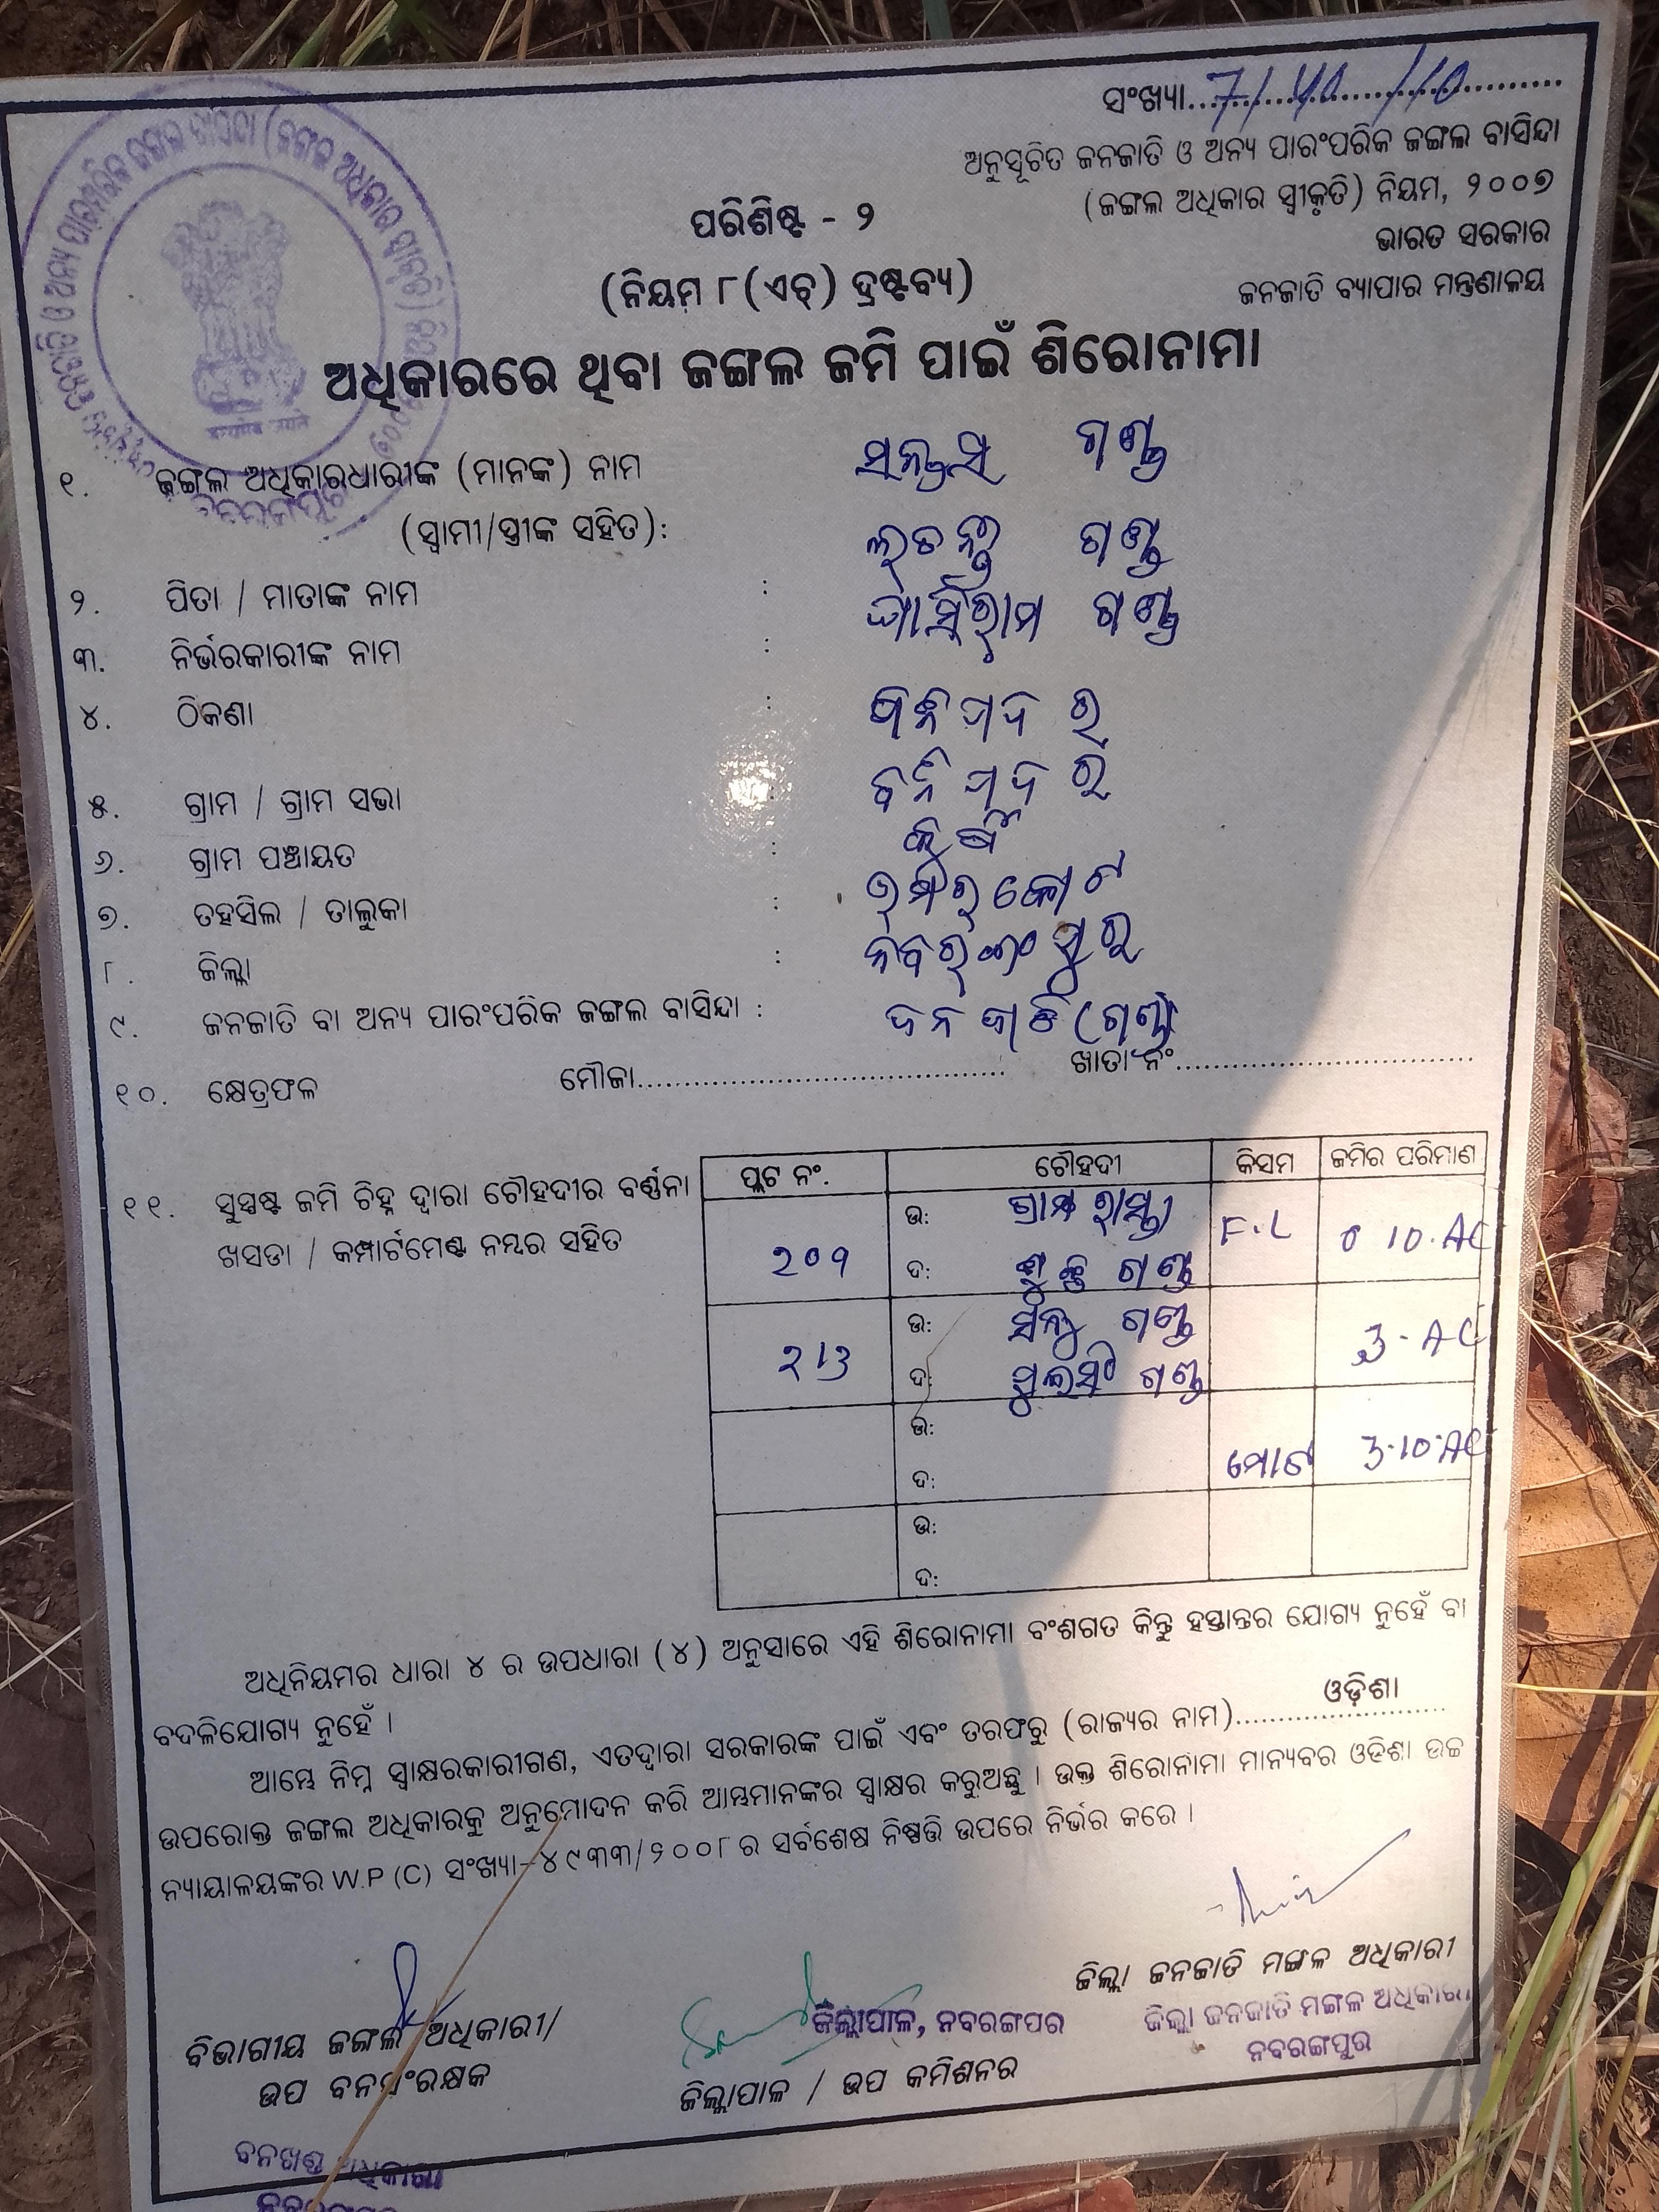 ସଂଖ୍ୟା...7/40/10
ଅନୁସୂଚିତ ଜନଜାତି ଓ ଅନ୍ୟ ପାରଂପରିକ ଜଙ୍ଗଲ ବାସିନ୍ଦା
(ଜଙ୍ଗଲ ଅଧିକାର ସ୍ୱୀକୃତି) ନିୟମ, ୨୦୦୭
ଭାରତ ସରକାର
ଜନଜାତି ବ୍ୟାପାର ମନ୍ତ୍ରଣାଳୟ
ପରିଶିଷ୍ଟ - ୨
(ନିୟମ ୮(ଏଚ୍) ଦ୍ରଷ୍ଟବ୍ୟ)
ଅଧିକାରରେ ଥିବା ଜଙ୍ଗଲ ଜମି ପାଇଁ ଶିରୋନାମା
୧. ଜଙ୍ଗଲ ଅଧିକାରଧାରୀଙ୍କ (ମାନଙ୍କ) ନାମ ଗଣ୍ଡ
(ସ୍ୱାମୀ/ସ୍ତ୍ରୀଙ୍କ ସହିତ): ଗଣ୍ଡ
୨. ପିତା / ମାତାଙ୍କ ନାମ : ଗଣ୍ଡ
୩. ନିର୍ଭରକାରୀଙ୍କ ନାମ :
୪. ଠିକଣା :
୫. ଗ୍ରାମ / ଗ୍ରାମ ସଭା
୬. ଗ୍ରାମ ପଞ୍ଚାୟତ :
୭. ତହସିଲ / ତାଲୁକା : ଉମରକୋଟ
୮. ଜିଲ୍ଲା : ନବରଙ୍ଗପୁର
୯. ଜନଜାତି ବା ଅନ୍ୟ ପାରଂପରିକ ଜଙ୍ଗଲ ବାସିନ୍ଦା : ଜନଜାତି (ଗଣ୍ଡ)
୧୦. କ୍ଷେତ୍ରଫଳ ମୌଜା........ ଖାତା ନଂ........
୧୧. ସୁସ୍ପଷ୍ଟ ଜମି ଚିହ୍ନ ଦ୍ୱାରା ଚୌହଦୀର ବର୍ଣ୍ଣନା
ଖସଡା / କମ୍ପାର୍ଟମେଣ୍ଟ ନମ୍ବର ସହିତ
ପ୍ଲଟ ନଂ. ଚୌହଦୀ କିସମ ଜମିର ପରିମାଣ
୨୦୩ ଉ: ଗ୍ରାମ ରାସ୍ତା F.L 0 10.AC
ଦ: ଗଣ୍ଡ
213 ଉ: ଗଣ୍ଡ 3-AC
ଦ: ଗଣ୍ଡ
ଉ:
ଦ: ମୋଟ 3.10.AC
ଉ:
ଦ:
ଅଧିନିୟମର ଧାରା ୪ ର ଉପଧାରା (୪) ଅନୁସାରେ ଏହି ଶିରୋନାମା ବଂଶଗତ କିନ୍ତୁ ହସ୍ତାନ୍ତର ଯୋଗ୍ୟ ନୁହେଁ ବା
ବଦଳିଯୋଗ୍ୟ ନୁହେଁ ।
ଆମ୍ଭେ ନିମ୍ନ ସ୍ୱାକ୍ଷରକାରୀଗଣ, ଏତଦ୍ୱାରା ସରକାରଙ୍କ ପାଇଁ ଏବଂ ତରଫରୁ (ରାଜ୍ୟର ନାମ)....ଓଡ଼ିଶା....
ଉପରୋକ୍ତ ଜଙ୍ଗଲ ଅଧିକାରକୁ ଅନୁମୋଦନ କରି ଆମ୍ଭମାନଙ୍କର ସ୍ୱାକ୍ଷର କରୁଅଛୁ । ଉକ୍ତ ଶିରୋନାମା ମାନ୍ୟବର ଓଡିଶା ଉଚ୍ଚ
ନ୍ୟାୟାଳୟଙ୍କର W.P (C) ସଂଖ୍ୟା-୪୯୩୩/୨୦୦୮ ର ସର୍ବଶେଷ ନିଷ୍ପତ୍ତି ଉପରେ ନିର୍ଭର କରେ ।
ବିଭାଗୀୟ ଜଙ୍ଗଲ ଅଧିକାରୀ/
ଉପ ବନସଂରକ୍ଷକ
ଜିଲ୍ଲାପାଳ, ନବରଙ୍ଗପୁର
ଜିଲ୍ଲାପାଳ / ଉପ କମିଶନର
ଜିଲ୍ଲା ଜନଜାତି ମଙ୍ଗଳ ଅଧିକାରୀ
ଜିଲ୍ଲା ଜନଜାତି ମଙ୍ଗଳ ଅଧିକାରୀ
ନବରଙ୍ଗପୁର
ବନଖଣ୍ଡ ଅଧିକାରୀ